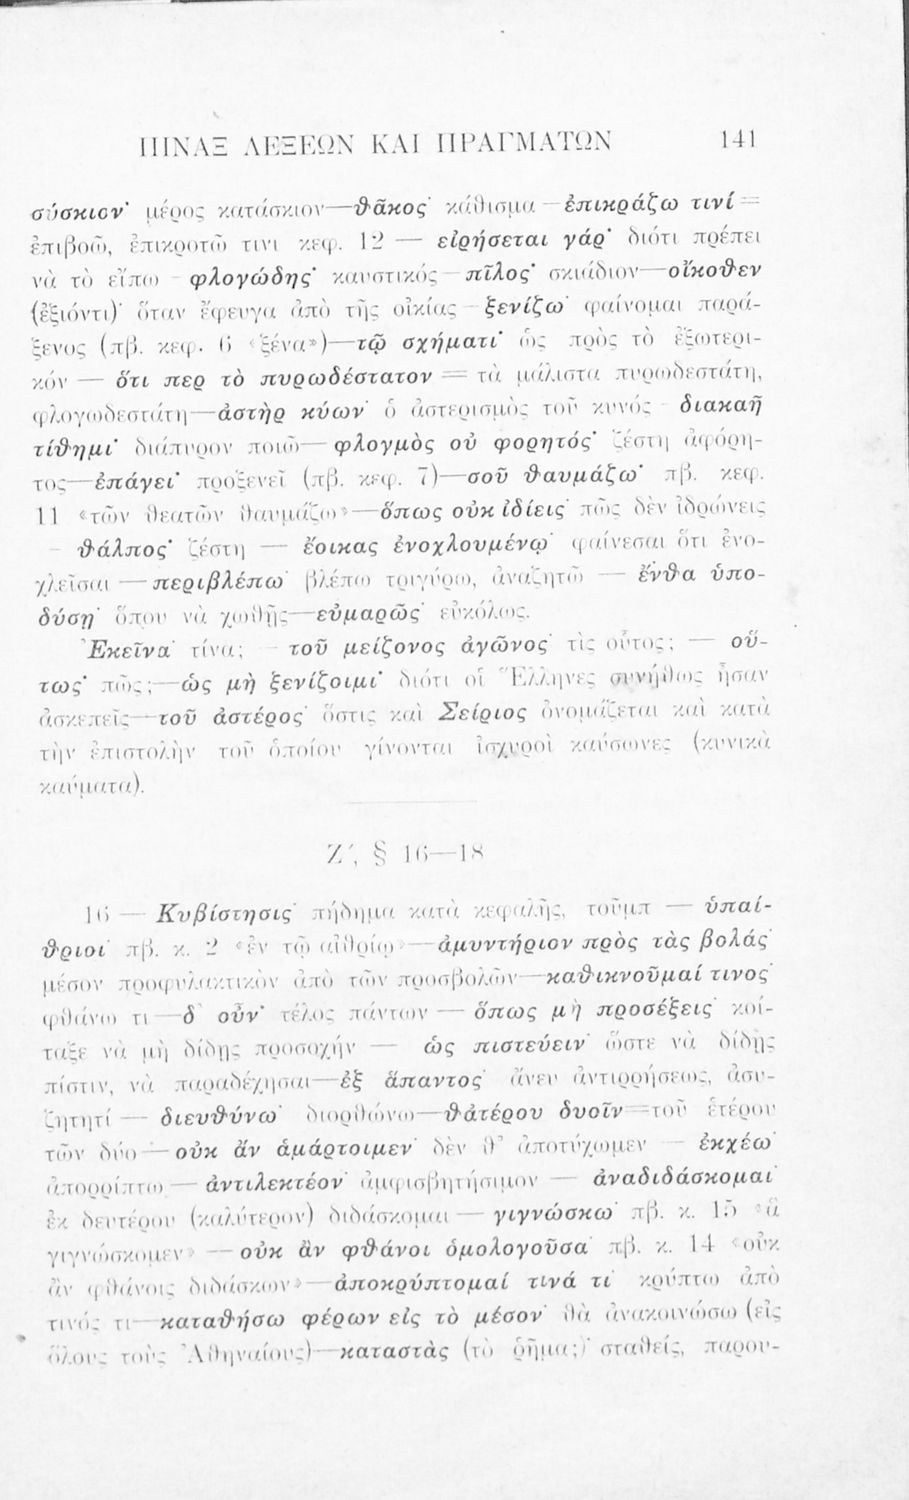 ΠΙΝΑΞ ΛΕΞΕΩΝ ΚΑΙ ΠΡΑΓΜΑΤΩΝ 141
σύσκιον˙ μέρος κατάσκιον—θᾶκος˙ κάθισμα—ἐπικράζω τινί =
ἐπιβοῶ, ἐπικροτῶ τινι κεφ. 12 — εἰρήσεται γάρ˙ διότι πρέπει
νὰ τὸ εἴπω—φλογώδης˙ καυστικός—πῖλος˙ σκιάδιον—οἴκοθεν
(ἐξιόντι)˙ ὅταν ἔφευγα ἀπὸ τῆς οἰκίας—ξενίζω˙ φαίνομαι παρά-
ξενος (πβ. κεφ. 6 «ξένα»)—τῷ σχήματι˙ ὡς πρὸς τὸ ἐξωτερι-
κόν — ὅτι περ τὸ πυρωδέστατον = τὰ μάλιστα πυρωδεστάτη,
φλογωδεστάτη—ἀστὴρ κύων˙ ὁ ἀστερισμὸς τοῦ κυνός—διακαῆ
τίθημι˙ διάπυρον ποιῶ—φλογμὸς οὐ φορητός˙ ζέστη ἀφόρη-
τος—ἐπάγει˙ προξενεῖ (πβ. κεφ. 7)—σοῦ θαυμάζω˙ πβ. κεφ.
11 «τῶν θεατῶν θαυμάζω»—ὅπως οὐκ ἰδίεις˙ πῶς δὲν ἱδρώνεις
— θάλπος˙ ζέστη — ἔοικας ἐνοχλουμένῳ˙ φαίνεσαι ὅτι ἐνο-
χλεῖσαι — περιβλέπω˙ βλέπω τριγύρω, ἀναζητῶ — ἔνθα ὑπο-
δύσῃ˙ ὅπου νὰ χωθῇς—εὐμαρῶς˙ εὐκόλως.
Ἐκεῖνα˙ τίνα; — τοῦ μείζονος ἀγῶνος˙ τὶς οὗτος; — οὕ-
τως˙ πῶς;—ὡς μὴ ξενίζοιμι˙ διότι οἱ Ἕλληνες συνήθως ἦσαν
ἀσκεπεῖς—τοῦ ἀστέρος˙ ὅστις καὶ Σείριος ὀνομάζεται καὶ κατὰ
τὴν ἐπιστολὴν τοῦ ὁποίου γίνονται ἰσχυροὶ καύσωνες (κυνικὰ
καύματα).
Ζ΄, § 16—18
16 — Κυβίστησις˙ πήδημα κατὰ κεφαλῆς, τοῦμπ — ὑπαί-
θριοι˙ πβ. κ. 2 «ἐν τῷ αἰθρίῳ»—ἀμυντήριον πρὸς τὰς βολάς˙
μέσον προφυλακτικὸν ἀπὸ τῶν προσβολῶν—καθικνοῦμαί τινος˙
φθάνω τι—δ᾽ οὖν˙ τέλος πάντων — ὅπως μὴ προσέξεις˙ κοί-
ταξε νὰ μὴ δίδῃς προσοχήν — ὡς πιστεύειν˙ ὥστε νὰ δίδῃς
πίστιν, νὰ παραδέχησαι—ἐξ ἅπαντος˙ ἄνευ ἀντιρρήσεως, ἀσυ-
ζητητί — διευθύνω˙ διορθώνω—θἀτέρου δυοῖν=τοῦ ἑτέρου
τῶν δύο — οὐκ ἄν ἁμάρτοιμεν˙ δὲν θ᾽ ἀποτύχωμεν — ἐκχέω˙
ἀπορρίπτω — ἀντιλεκτέον˙ ἀμφισβητήσιμον — ἀναδιδάσκομαι˙
ἐκ δευτέρου (καλύτερον) διδάσκομαι — γιγνώσκω˙ πβ. κ. 15 «ἃ
γιγνώσκομεν» — οὐκ ἂν φθάνοι ὁμολογοῦσα˙ πβ. κ. 14 «οὐκ
ἂν φθάνοις διδάσκων»—ἀποκρύπτομαί τινά τι˙ κρύπτω ἀπὸ
τινός τι—καταθήσω φέρων εἰς τὸ μέσον˙ θὰ ἀνακοινώσω (εἰς
ὅλους τοὺς Ἀθηναίους)—καταστὰς (τὸ ῥῆμα;)˙ σταθείς, παρου-